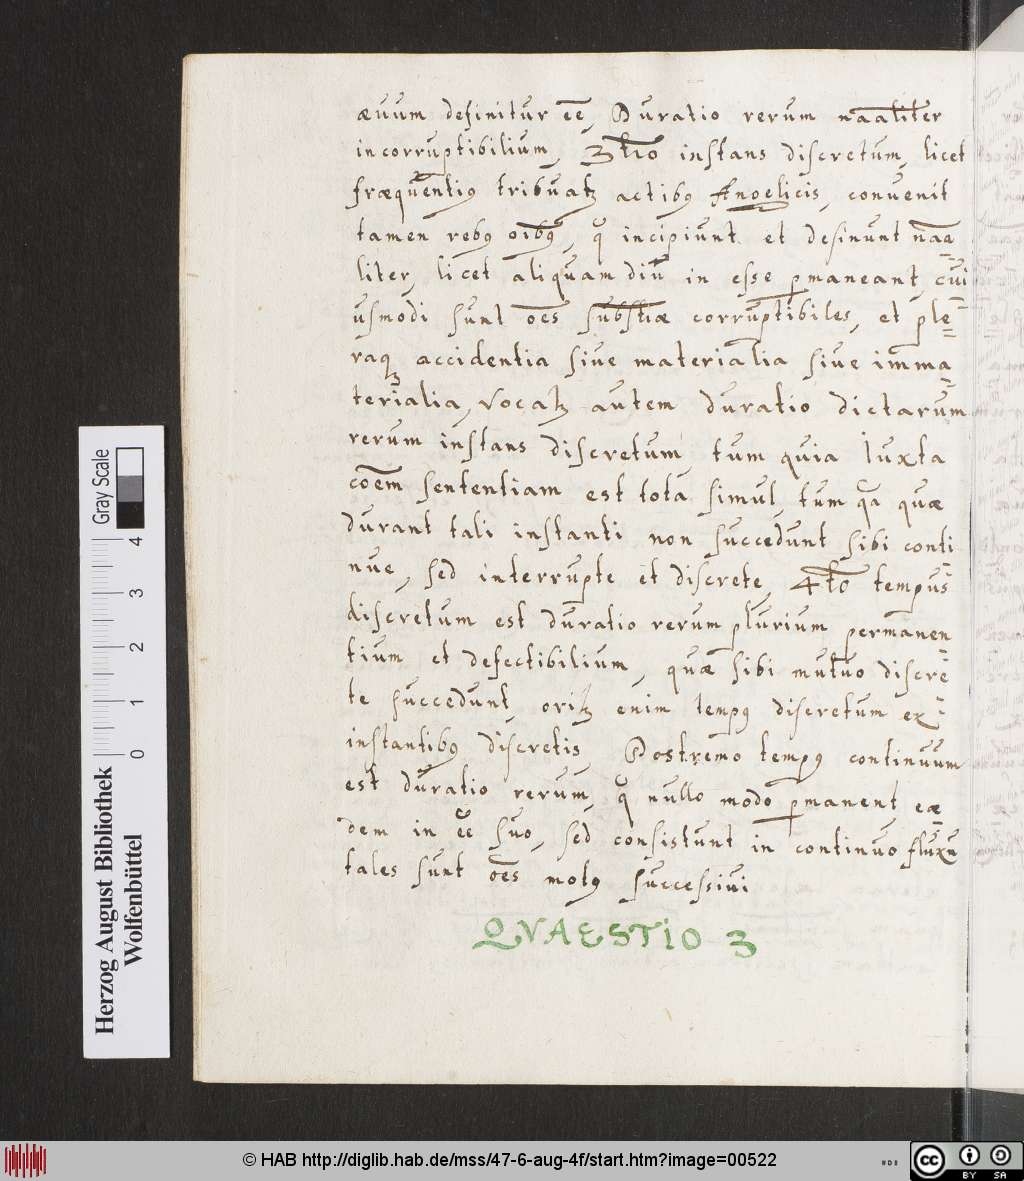 ævum definitur ēē, Duratio rerum naāliter
incorruptibilium, 3tio instans discretum, licet
fræquentiꝰ tribuatꝛ actibꝰ Angelicis, convenit
tamen rebꝰ oībꝰ, q̄ incipiunt et desinunt naā=
liter, licet aliquam diū in esse ꝑmaneant, cui=
usmodi sunt oēs substīæ corruptibiles, et ple=
raqꝫ accidentia sive materialia sive imma=
terialia, vocatꝛ autem duratio dictarum
rerum instans discretum, tum quia Iuxta
coēm sententiam est tota simul, tum qa quæ
durant tali instanti non succedunt sibi conti=
nue, sed interrupte et discrete, 4to tempus
discretum est duratio rerum plurium permanen=
tium et defectibilium, quæ sibi mutuo discre=
te succedunt, oritꝛ enim tempꝰ discretum ex=
instantibꝰ discretis, Postremo tempꝰ continuum
est duratio rerum, q̄ nullo modo ꝑmanent eæ=
dem in ēē suo, sed consistunt in continuo fluxu
tales sunt oēs motꝰ successivi
QVAESTIO 3
Gray Scale
0 1 2 3 4
Herzog August Bibliothek
Wolfenbüttel
© HAB http://diglib.hab.de/mss/47-6-aug-4f/start.htm?image=00522
cc BY SA